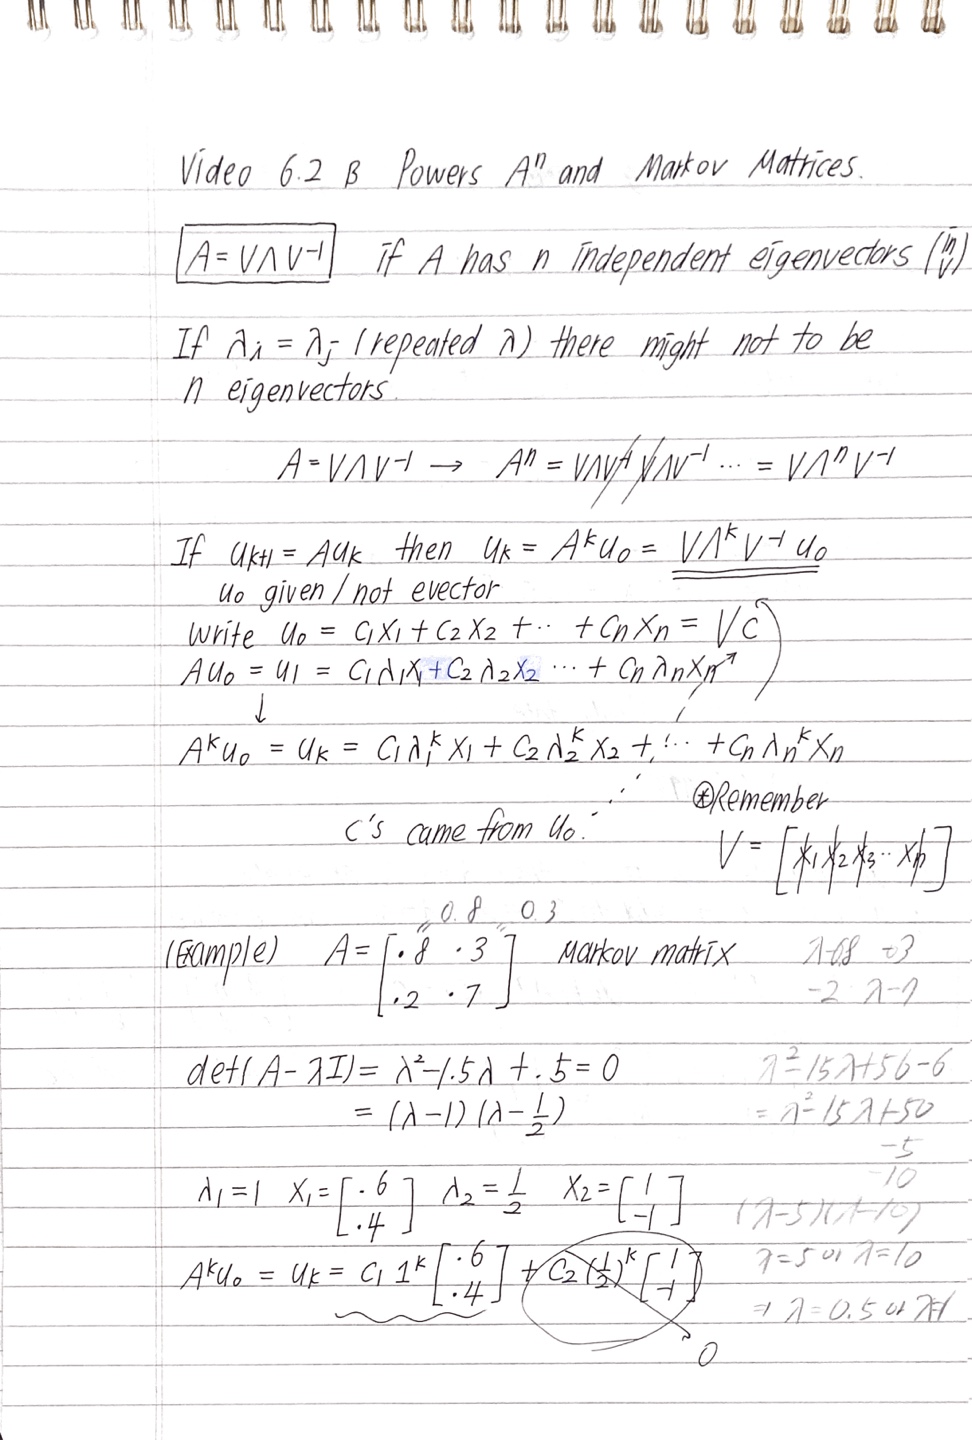 Video 6.2 B Powers Aⁿ and Markov Matrices.
A = VΛV⁻¹ if A has n independent eigenvectors (in V)
If λi = λj (repeated λ) there might not to be
n eigenvectors.
A = VΛV⁻¹ → Aⁿ = VΛV⁻¹ VΛV⁻¹ ... = VΛⁿV⁻¹
If uk+1 = Auk then uk = Aᵏu₀ = VΛᵏV⁻¹u₀
u₀ given / not evector
Write u₀ = C₁X₁ + C₂X₂ + ·· + CnXn = VC
Au₀ = u₁ = C₁λ₁X₁ + C₂λ₂X₂ ... + CnλnXn
↓
Aᵏu₀ = uk = C₁λ₁ᵏX₁ + C₂λ₂ᵏX₂ + ... + CnλnᵏXn
⊛Remember
C's came from u₀.
V = [X₁ X₂ X₃ ·· Xn]
0.8 0.3
(Example) A = [.8 .3 Markov matrix λ-0.8 -3
.2 .7] -2 λ-7
det(A - λI) = λ² - 1.5λ + .5 = 0 λ²-15λ+56-6
= (λ-1)(λ-1/2) = λ²-15λ+50
-5
-10
λ₁ = 1 X₁ = [.6 .4] λ₂ = 1/2 X₂ = [1 -1] (λ-5)(λ-10)
Aᵏu₀ = uk = C₁ 1ᵏ [.6 .4] + C₂ (1/2)ᵏ [1 -1] λ=5 or λ=10
⇒ λ=0.5 or λ=1
0